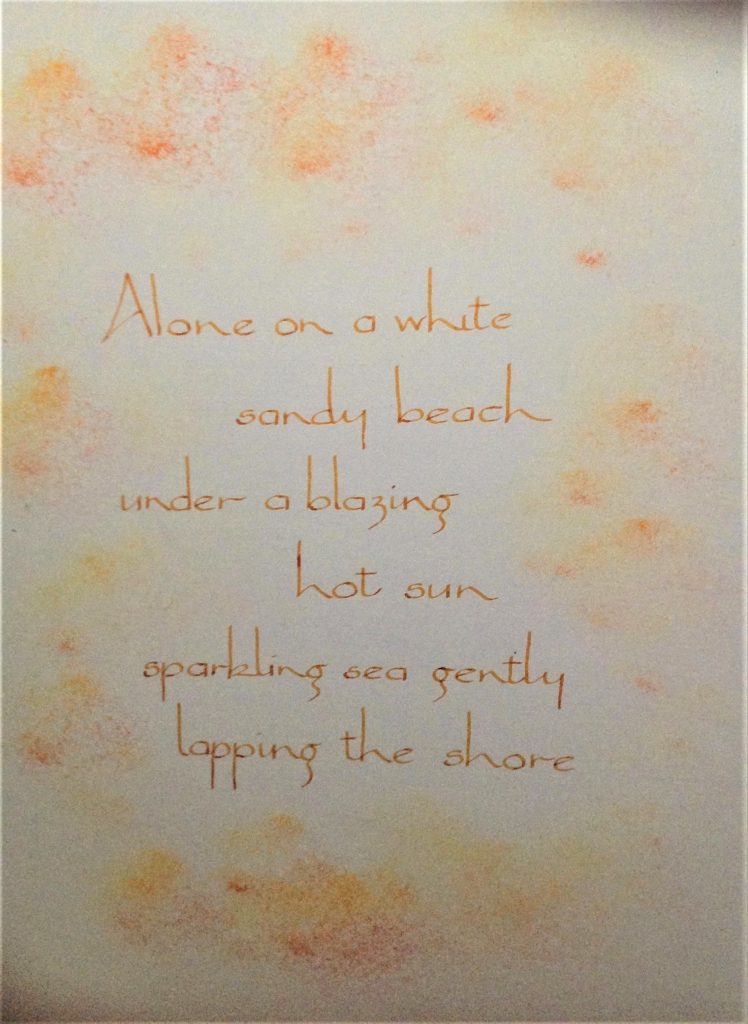 Alone on a white
sandy beach
under a blazing
hot sun
sparkling sea gently
lapping the shore